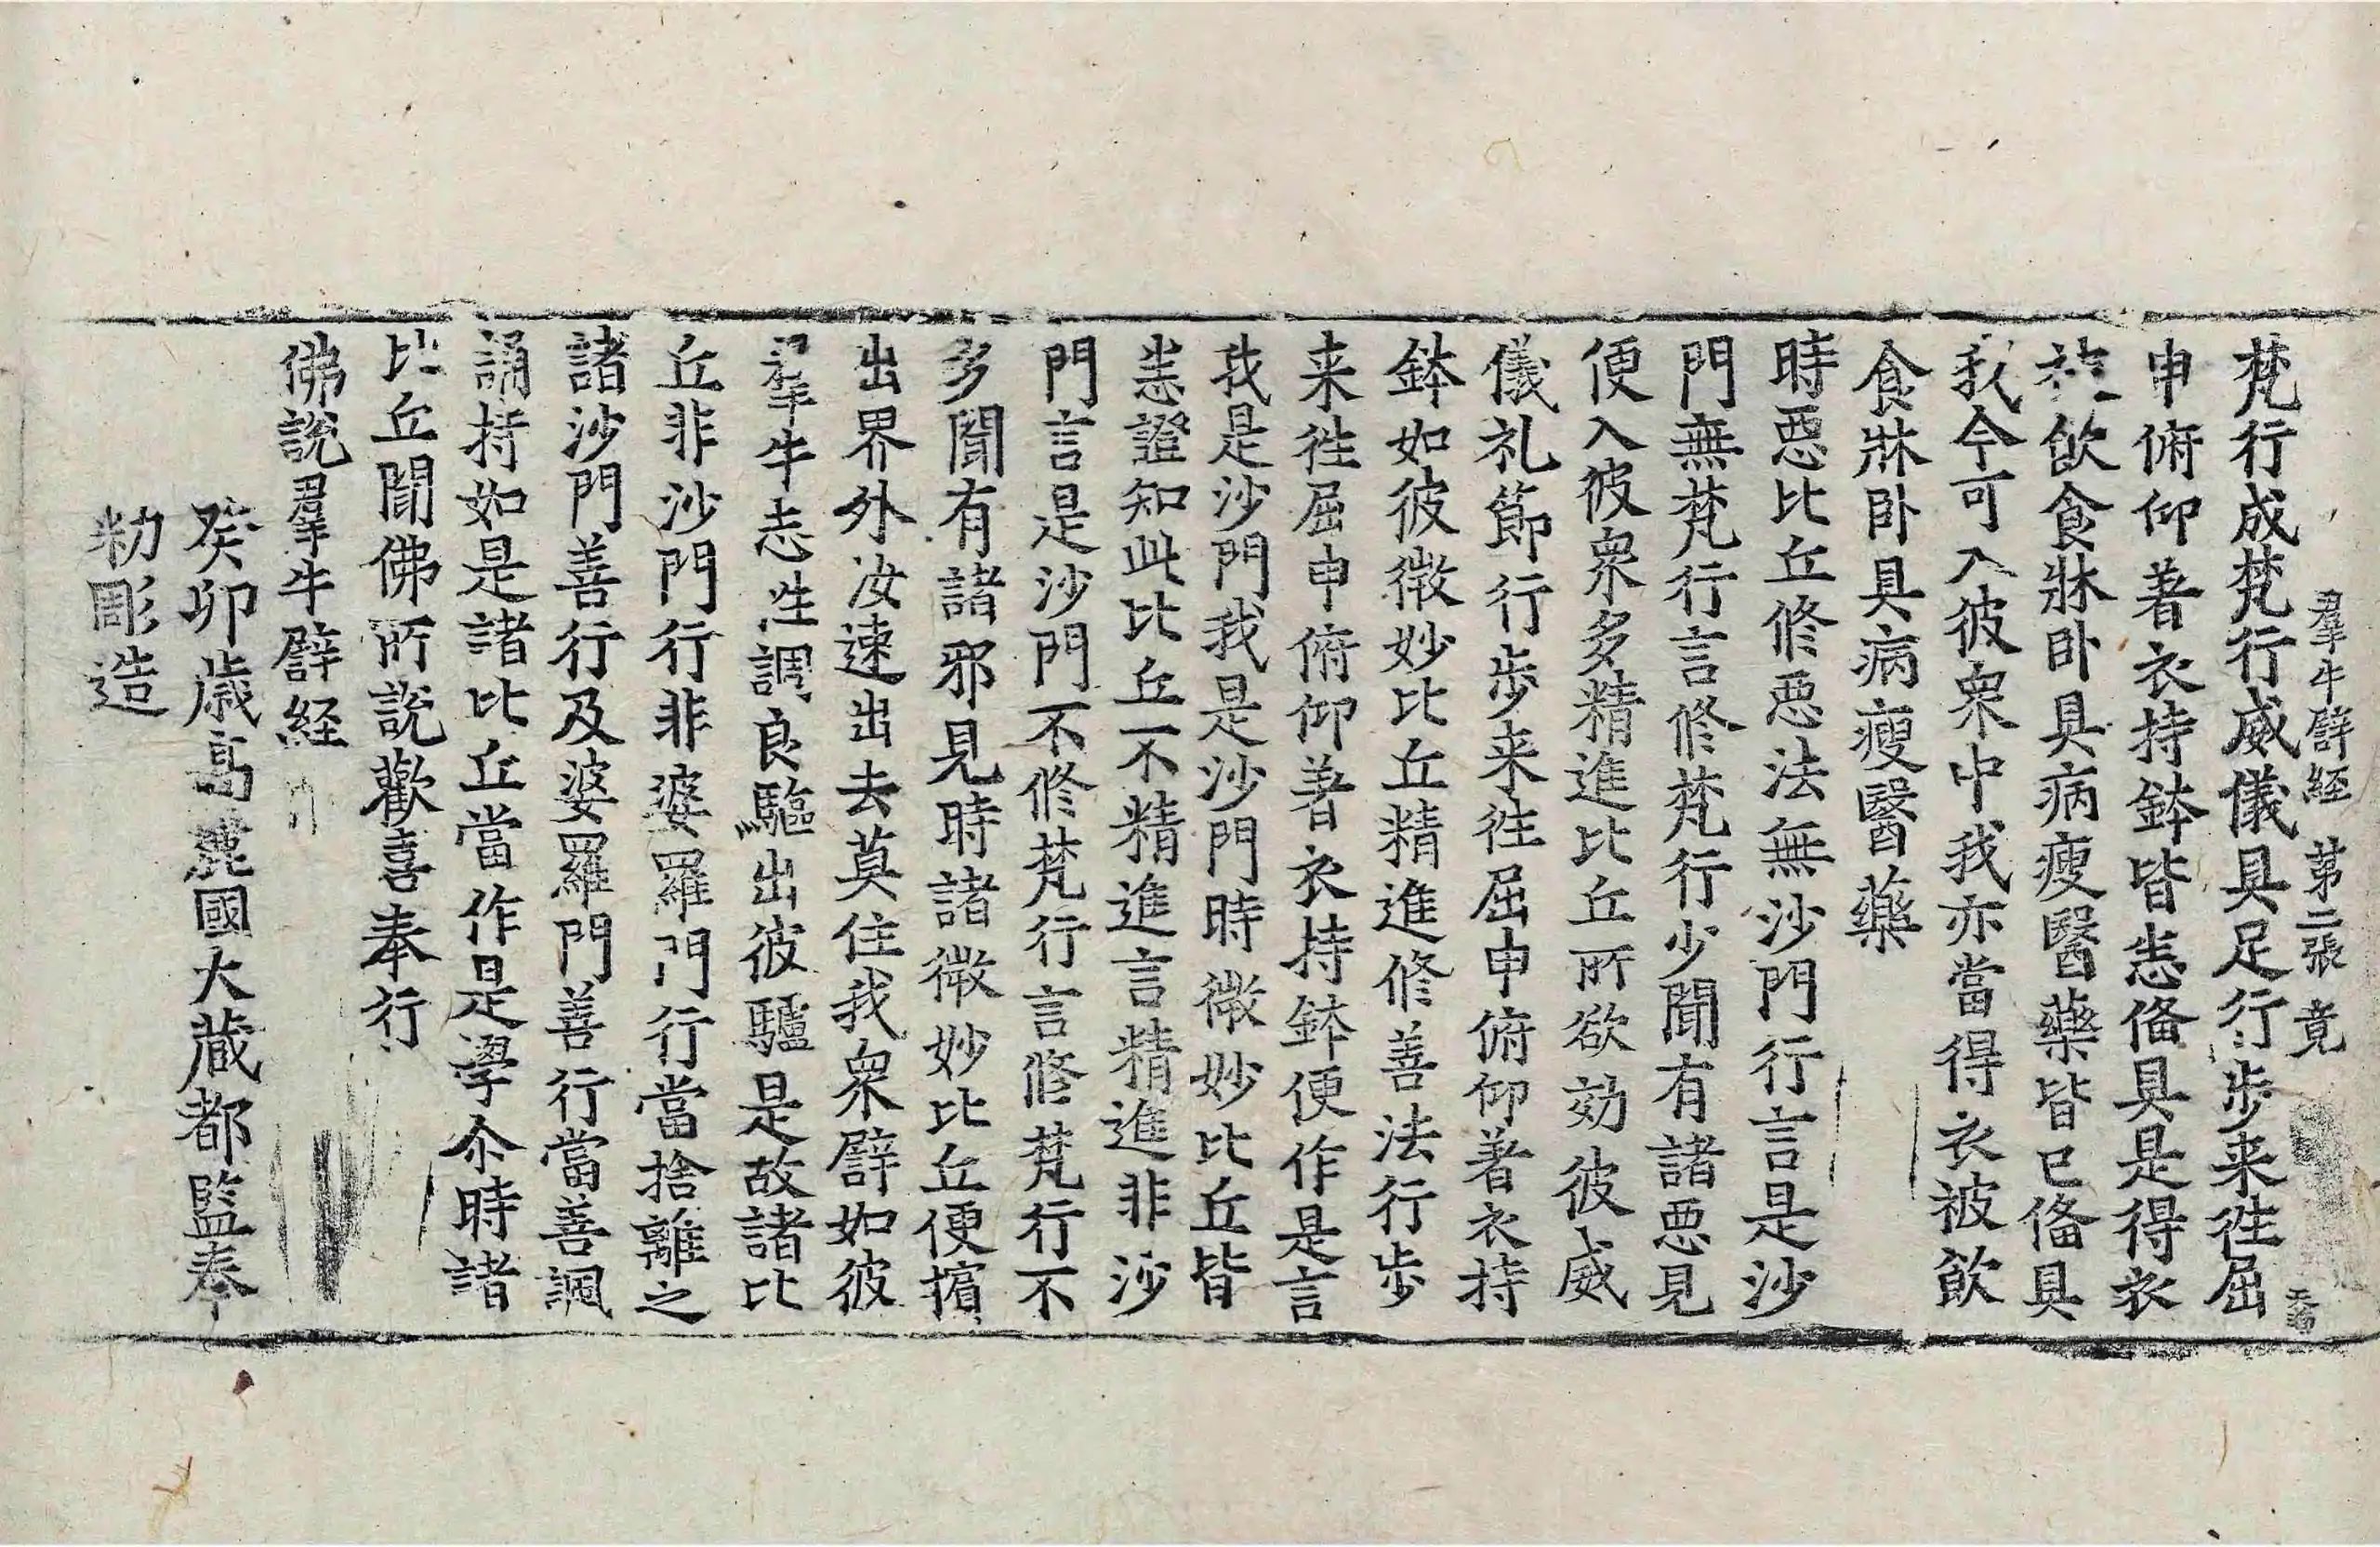 羣牛譬経 第二張 竟
梵行成梵行威儀具足行步来徃屈
申俯仰著衣持鉢皆悉俻具是得衣
被飲食牀卧具病瘦醫藥皆已俻具
我今可入彼衆中我亦當得衣被飲
食牀卧具病瘦醫藥
時惡比丘修惡法無沙門行言是沙
門無梵行言修梵行少聞有諸惡見
便入彼衆多精進比丘所欲効彼威
儀礼節行步来徃屈申俯仰著衣持
鉢如彼微妙比丘精進修善法行步
来徃屈申俯仰著衣持鉢便作是言
我是沙門我是沙門時微妙比丘皆
悉證知此比丘不精進言精進非沙
門言是沙門不修梵行言修梵行不
多聞有諸邪見時諸微妙比丘便擯
出界外汝速出去莫住我衆譬如彼
羣牛志性調良驅出彼驢是故諸比
丘非沙門行非婆羅門行當捨離之
諸沙門善行及婆羅門善行當善諷
誦持如是諸比丘當作是學尒時諸
比丘聞佛所說歡喜奉行
佛說羣牛譬経
癸卯歲高麗國大藏都監奉
勑彫造